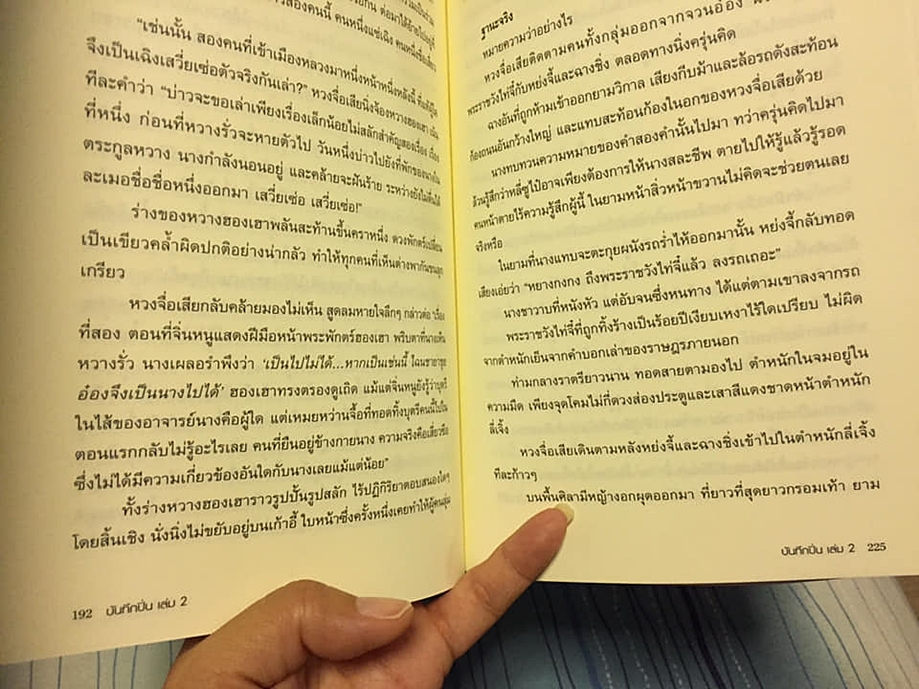 สองคนนี้ คนหนึ่งแซ่เฉิง คนหนึ่ง
“เช่นนั้น สองคนที่เข้าเมืองหลวงมาหนึ่งหน้าหนึ่งหลังนี้
จึงเป็นเฉิงเสวี่ยเซ่อตัวจริงกันเล่า?” หวงจื่อเสียนิ่งจ้องหวางฮองเฮา เน้น
ทีละคำว่า “บ่าวจะขอเล่าเพียงเรื่องเล็กน้อยไม่สลักสำคัญสองเรื่อง เรื่อง
ที่หนึ่ง ก่อนที่หวางรั่วจะหายตัวไป วันหนึ่งบ่าวไปยังที่พักของนางใน
ตระกูลหวาง นางกำลังนอนอยู่ และคล้ายจะฝันร้าย ระหว่างยังไม่ตื่นได้
ละเมอชื่อชื่อหนึ่งออกมา เสวี่ยเซ่อ เสวี่ยเซ่อ!”
ร่างของหวางฮองเฮาพลันสะท้านขึ้นคราหนึ่ง ดวงพักตร์เปลี่ยน
เป็นเขียวคล้ำผิดปกติอย่างน่ากลัว ทำให้ทุกคนที่เห็นต่างพากันขนลุก
เกรียว
หวงจื่อเสียกลับคล้ายมองไม่เห็น สูดลมหายใจลึกๆ กล่าวต่อ “เรื่อง
ที่สอง ตอนที่จิ่นหนูแสดงฝีมือหน้าพระพักตร์ฮองเฮา พริบตาที่นางเห็น
หวางรั่ว นางเผลอรำพึงว่า ‘เป็นไปไม่ได้...หากเป็นเช่นนี้ ไฉนชายาขุย
อ๋องจึงเป็นนางไปได้’ ฮองเฮาทรงตรองดูเถิด แม้แต่จิ่นหนูยังรู้ว่าบุตรี
ในไส้ของอาจารย์นางคือผู้ใด แต่เหมยหว่านจื้อที่ทอดทิ้งบุตรีคนนี้ไปใน
ตอนแรกกลับไม่รู้อะไรเลย คนที่ยืนอยู่ข้างกายนาง ความจริงคือเสี่ยวซือ
ซึ่งไม่ได้มีความเกี่ยวข้องอันใดกับนางเลยแม้แต่น้อย”
ทั้งร่างหวางฮองเฮาราวรูปปั้นรูปสลัก ไร้ปฏิกิริยาตอบสนองใดๆ
โดยสิ้นเชิง นั่งนิ่งไม่ขยับอยู่บนเก้าอี้ ใบหน้าซึ่งครั้งหนึ่งเคยทำให้ผู้คนลุ่ม
192 บันทึกปิ่น เล่ม 2
ฐานะจริง
หมายความว่าอย่างไร
หวงจื่อเสียติดตามคนทั้งกลุ่มออกจากจวนอ๋อง
พระราชวังไท่จี๋กับหย่งจี้และฉางชิ่ง ตลอดทางนิ่งครุ่นคิด
ฉางอันที่ถูกห้ามเข้าออกยามวิกาล เสียงกีบม้าและล้อรถดังสะท้อน
ก้องถนนอันกว้างใหญ่ และแทบสะท้อนก้องในอกของหวงจื่อเสียด้วย
นางทบทวนความหมายของคำสองคำนั้นไปมา ทว่าครุ่นคิดไปมา
ล้วนรู้สึกว่าหลี่ซูไป๋อาจเพียงต้องการให้นางสละชีพ ตายไปให้รู้แล้วรู้รอด
คนหน้าตายไร้ความรู้สึกผู้นี้ ในยามหน้าสิ่วหน้าขวานไม่คิดจะช่วยตนเลย
จริงหรือ
ในยามที่นางแทบจะตะกุยผนังรถร่ำไห้ออกมานั้น หย่งจี้ก็กลับทอด
เสียงเอ่ยว่า “หยางกงกง ถึงพระราชวังไท่จี๋แล้ว ลงรถเถอะ”
นางชาวาบที่หนังหัว แต่อับจนซึ่งหนทาง ได้แต่ตามเขาลงจากรถ
พระราชวังไท่จี๋ที่ถูกทิ้งร้างเป็นร้อยปีเงียบเหงาไร้ใดเปรียบ ไม่ผิด
จากตำหนักเย็นจากคำบอกเล่าของราษฎรภายนอก
ท่ามกลางราตรียาวนาน ทอดสายตามองไป ตำหนักในจมอยู่ใน
ความมืด เพียงจุดโคมไม่กี่ดวงส่องประตูและเสาสีแดงชาดหน้าตำหนัก
ลี่เจิ้ง
หวงจื่อเสียเดินตามหลังหย่งจี้และฉางชิ่งเข้าไปในตำหนักลี่เจิ้ง
ทีละก้าวๆ
บนพื้นศิลามีหญ้างอกผุดออกมา ที่ยาวที่สุดยาวกรอมเท้า ยาม
บันทึกปิ่น เล่ม 2 225